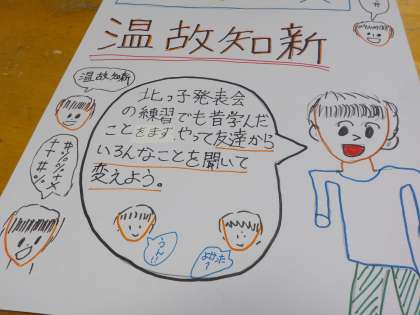 温故知新
温故知新
北っ子発表会
の練習でも昔学んだ
ことをまず、やって友達から
いろんなことを聞いて
変えよう。
うん!!